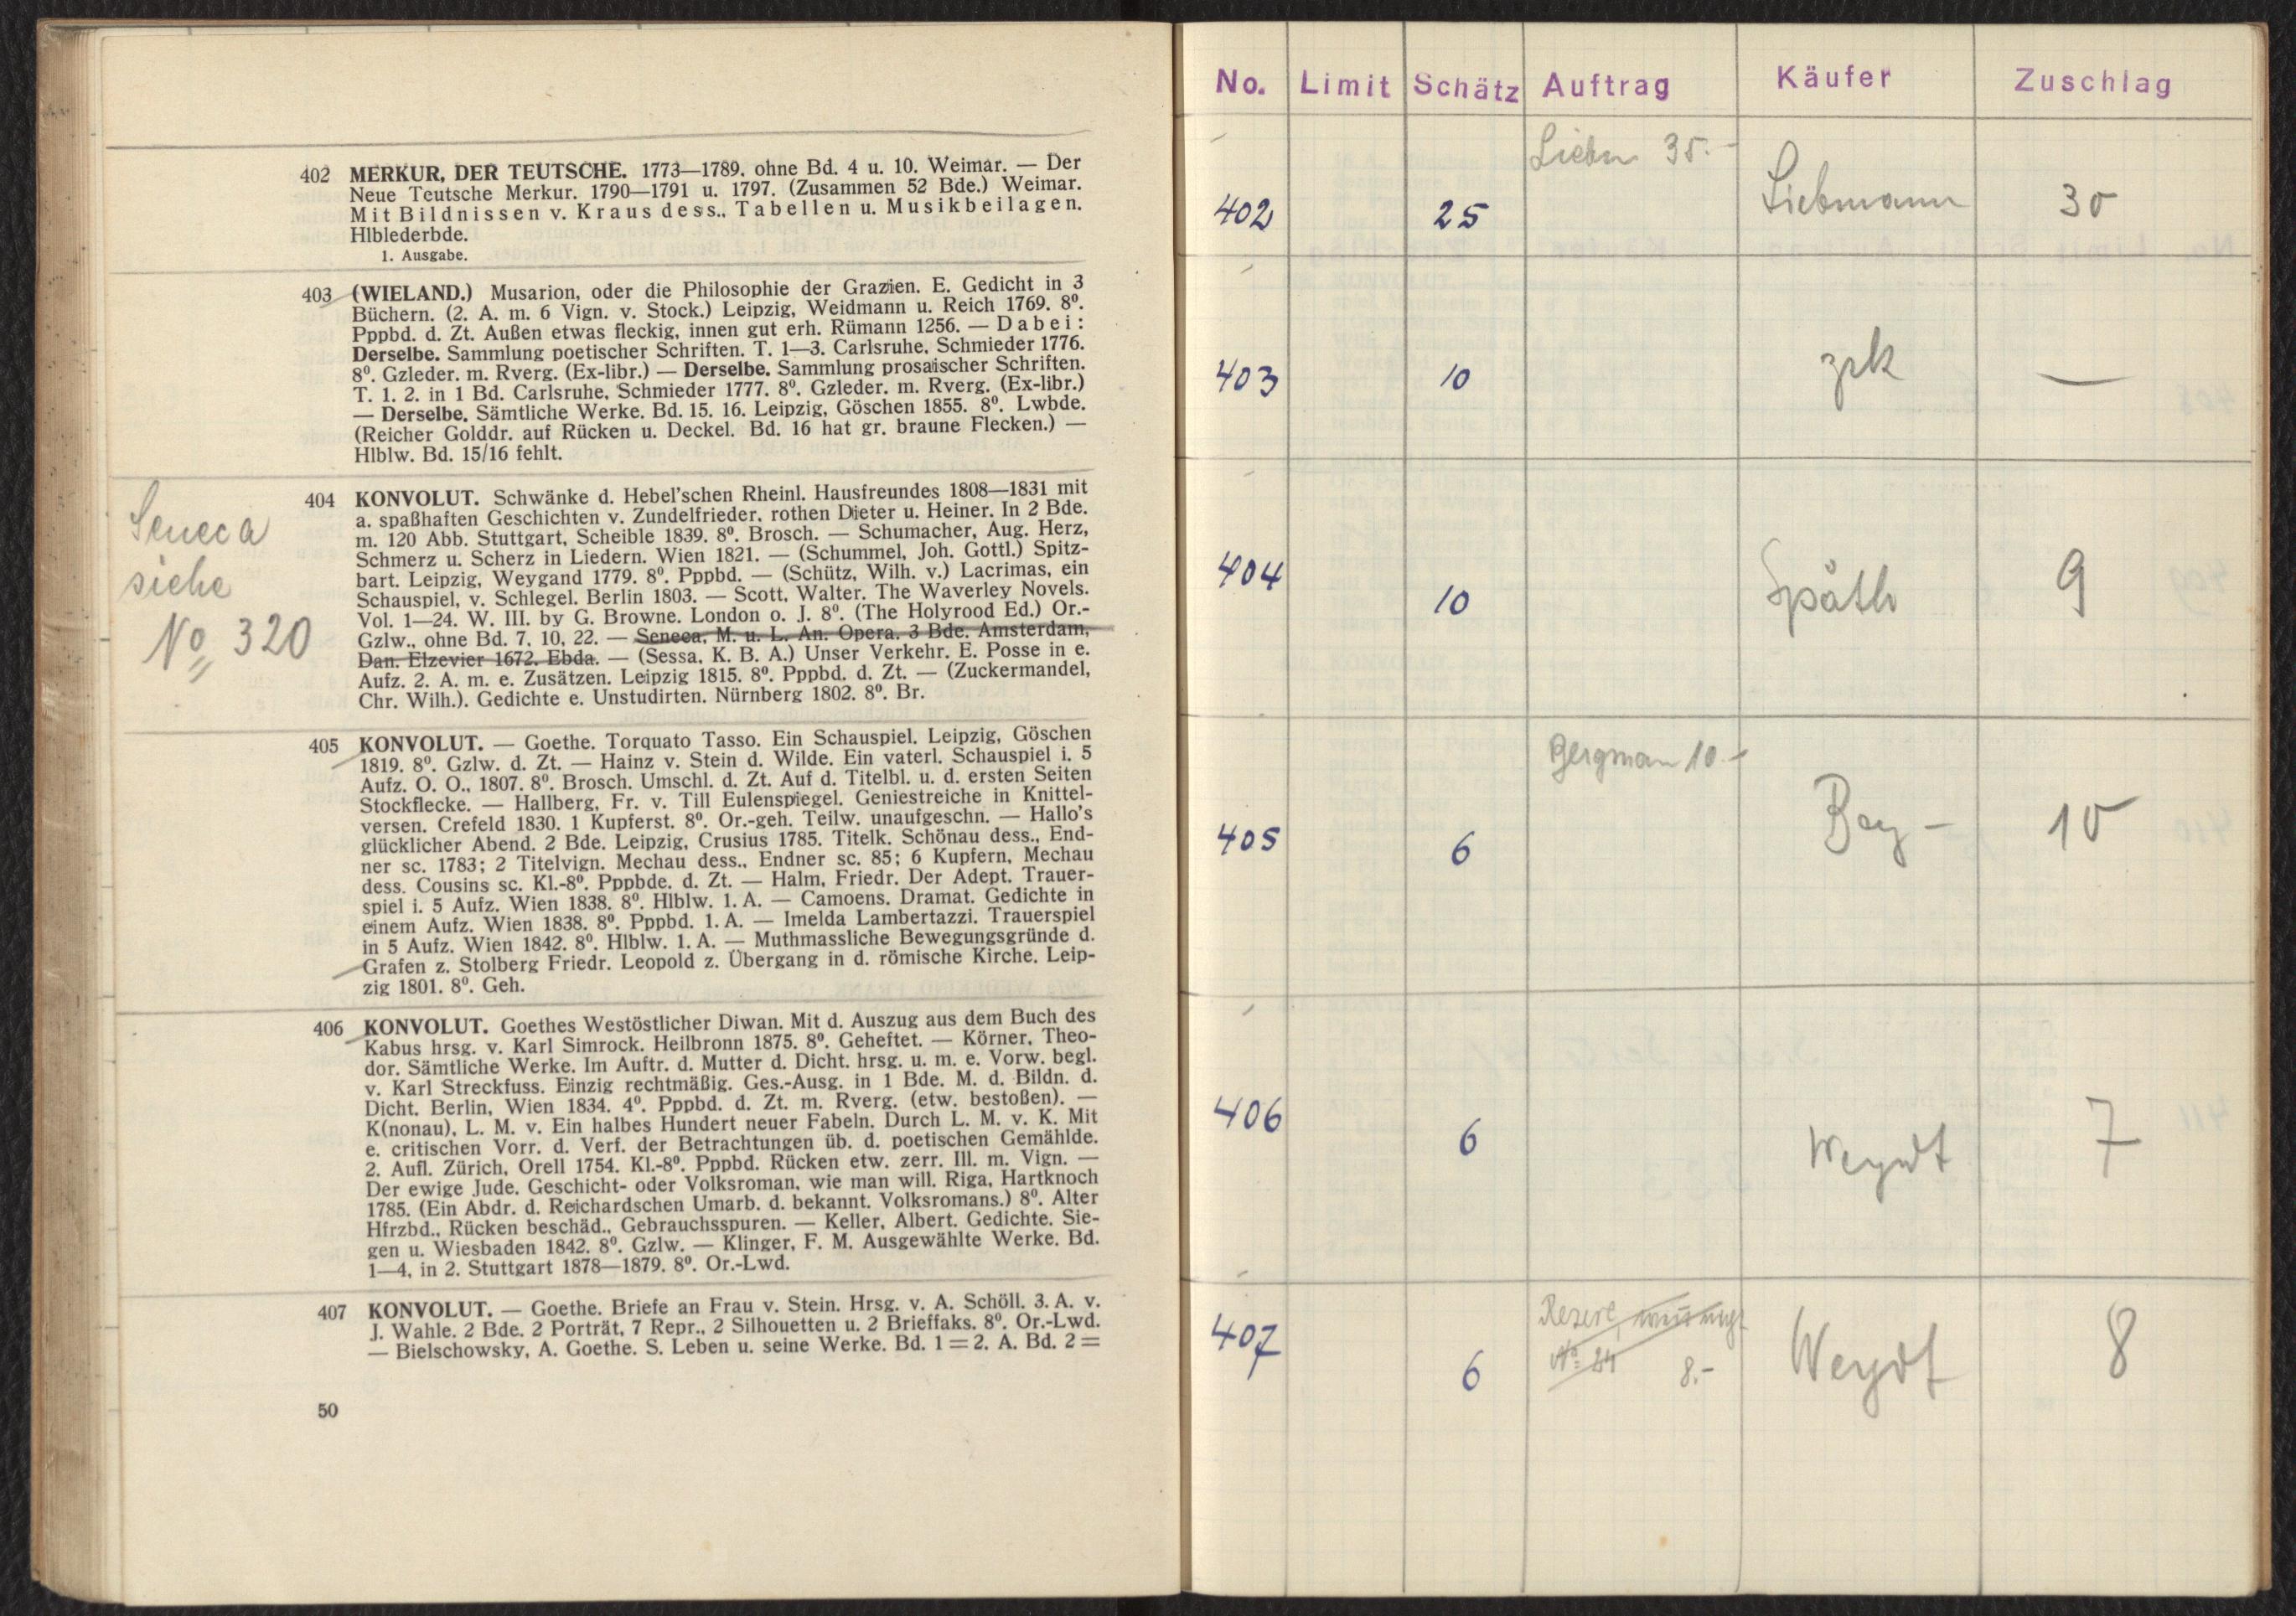 402 MERKUR, DER TEUTSCHE. 1773—1789. ohne Bd. 4 u. 10. Weimar. — Der
Neue Teutsche Merkur. 1790—1791 u. 1797. (Zusammen 52 Bde.) Weimar.
Mit Bildnissen v. Kraus dess., Tabellen u. Musikbeilagen.
Hlblederbde.
1. Ausgabe.
403 (WIELAND.) Musarion, oder die Philosophie der Grazien. E. Gedicht in 3
Büchern. (2. A. m. 6 Vign. v. Stock.) Leipzig, Weidmann u. Reich 1769. 8⁰.
Pppbd. d. Zt. Außen etwas fleckig, innen gut erh. Rümann 1256. — Dabei:
Derselbe. Sammlung poetischer Schriften. T. 1—3. Carlsruhe, Schmieder 1776.
8⁰. Gzleder. m. Rverg. (Ex-libr.) — Derselbe. Sammlung prosaischer Schriften.
T. 1. 2. in 1 Bd. Carlsruhe, Schmieder 1777. 8⁰. Gzleder. m. Rverg. (Ex-libr.)
— Derselbe. Sämtliche Werke. Bd. 15. 16. Leipzig, Göschen 1855. 8⁰. Lwbde.
(Reicher Golddr. auf Rücken u. Deckel. Bd. 16 hat gr. braune Flecken.) —
Hlblw. Bd. 15/16 fehlt.
Seneca
siehe
No 320
404 KONVOLUT. Schwänke d. Hebel'schen Rheinl. Hausfreundes 1808—1831 mit
a. spaßhaften Geschichten v. Zundelfrieder, rothen Dieter u. Heiner. In 2 Bde.
m. 120 Abb. Stuttgart, Scheible 1839. 8⁰. Brosch. — Schumacher, Aug. Herz,
Schmerz u. Scherz in Liedern. Wien 1821. — (Schummel, Joh. Gottl.) Spitz-
bart. Leipzig, Weygand 1779. 8⁰. Pppbd. — (Schütz, Wilh. v.) Lacrimas, ein
Schauspiel, v. Schlegel. Berlin 1803. — Scott, Walter. The Waverley Novels.
Vol. 1—24. W. III. by G. Browne. London o. J. 8⁰. (The Holyrood Ed.) Or.-
Gzlw., ohne Bd. 7, 10, 22. — Seneca, M. u. L. An. Opera. 3 Bde. Amsterdam,
Dan. Elzevier 1672. Ebda. — (Sessa, K. B. A.) Unser Verkehr. E. Posse in e.
Aufz. 2. A. m. e. Zusätzen. Leipzig 1815. 8⁰. Pppbd. d. Zt. — (Zuckermandel,
Chr. Wilh.). Gedichte e. Unstudirten. Nürnberg 1802. 8⁰. Br.
405 KONVOLUT. — Goethe. Torquato Tasso. Ein Schauspiel. Leipzig, Göschen
1819. 8⁰. Gzlw. d. Zt. — Hainz v. Stein d. Wilde. Ein vaterl. Schauspiel i. 5
Aufz. O. O., 1807. 8⁰. Brosch. Umschl. d. Zt. Auf d. Titelbl. u. d. ersten Seiten
Stockflecke. — Hallberg, Fr. v. Till Eulenspiegel. Geniestreiche in Knittel-
versen. Crefeld 1830. 1 Kupferst. 8⁰. Or.-geh. Teilw. unaufgeschn. — Hallo's
glücklicher Abend. 2 Bde. Leipzig, Crusius 1785. Titelk. Schönau dess., End-
ner sc. 1783; 2 Titelvign. Mechau dess., Endner sc. 85; 6 Kupfern, Mechau
dess. Cousins sc. Kl.-8⁰. Pppbde. d. Zt. — Halm, Friedr. Der Adept. Trauer-
spiel i. 5 Aufz. Wien 1838. 8⁰. Hlblw. 1. A. — Camoens. Dramat. Gedichte in
einem Aufz. Wien 1838. 8⁰. Pppbd. 1. A. — Imelda Lambertazzi. Trauerspiel
in 5 Aufz. Wien 1842. 8⁰. Hlblw. 1. A. — Muthmassliche Bewegungsgründe d.
Grafen z. Stolberg Friedr. Leopold z. Übergang in d. römische Kirche. Leip-
zig 1801. 8⁰. Geh.
406 KONVOLUT. Goethes Westöstlicher Diwan. Mit d. Auszug aus dem Buch des
Kabus hrsg. v. Karl Simrock. Heilbronn 1875. 8⁰. Geheftet. — Körner, Theo-
dor. Sämtliche Werke. Im Auftr. d. Mutter d. Dicht. hrsg. u. m. e. Vorw. begl.
v. Karl Streckfuss. Einzig rechtmäßig. Ges.-Ausg. in 1 Bde. M. d. Bildn. d.
Dicht. Berlin, Wien 1834. 4⁰. Pppbd. d. Zt. m. Rverg. (etw. bestoßen). —
K(nonau), L. M. v. Ein halbes Hundert neuer Fabeln. Durch L. M. v. K. Mit
e. critischen Vorr. d. Verf. der Betrachtungen üb. d. poetischen Gemählde.
2. Aufl. Zürich, Orell 1754. Kl.-8⁰. Pppbd. Rücken etw. zerr. Ill. m. Vign. —
Der ewige Jude. Geschicht- oder Volksroman, wie man will. Riga, Hartknoch
1785. (Ein Abdr. d. Reichardschen Umarb. d. bekannt. Volksromans.) 8⁰. Alter
Hfrzbd., Rücken beschäd., Gebrauchsspuren. — Keller, Albert. Gedichte. Sie-
gen u. Wiesbaden 1842. 8⁰. Gzlw. — Klinger, F. M. Ausgewählte Werke. Bd.
1—4, in 2. Stuttgart 1878—1879. 8⁰. Or.-Lwd.
407 KONVOLUT. — Goethe. Briefe an Frau v. Stein. Hrsg. v. A. Schöll. 3. A. v.
J. Wahle. 2 Bde. 2 Porträt, 7 Repr., 2 Silhouetten u. 2 Brieffaks. 8⁰. Or.-Lwd.
— Bielschowsky, A. Goethe. S. Leben u. seine Werke. Bd. 1 = 2. A. Bd. 2 =
50
No. Limit Schätz Auftrag Käufer Zuschlag
35.-
402 25 Liebmann 30
403 10 zrk —
404 10 Späth 9
Bergman 10.-
405 6 10
406 6 Weydt 7
407 6 8.- Weydt 8